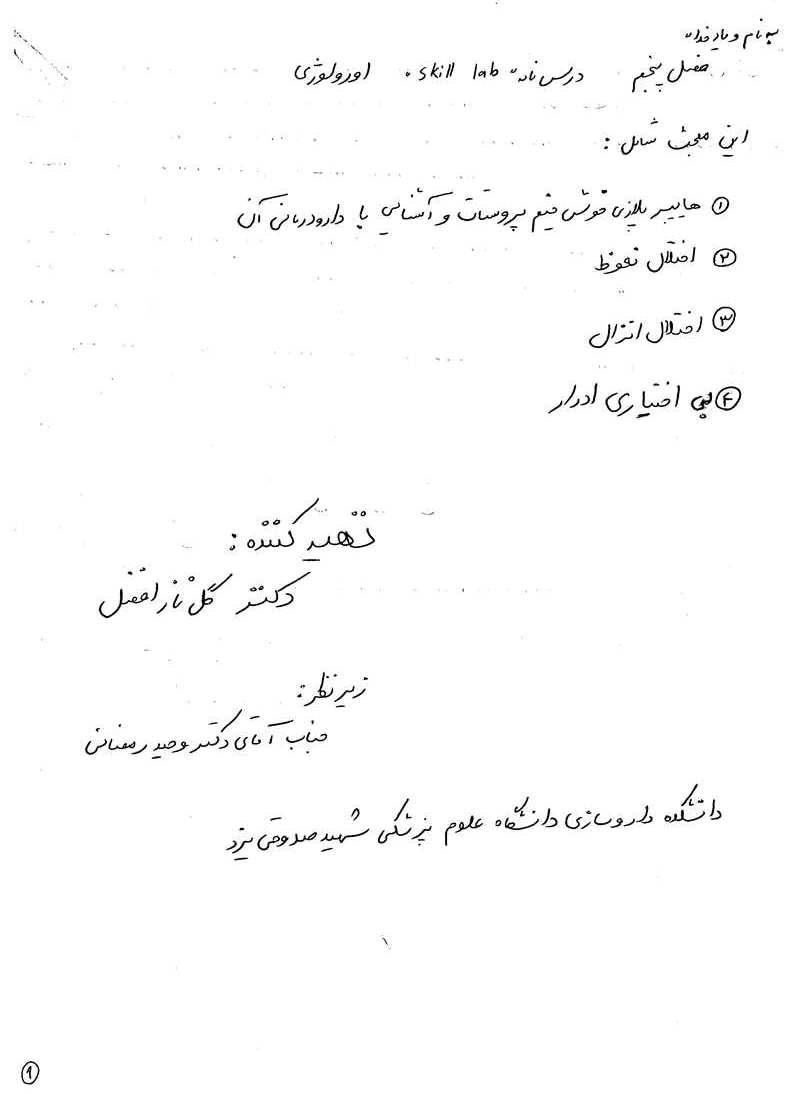 به نام و یاد خدا
فصل پنجم درس نامه skill lab اورولوژی
این مبحث شامل :
① هایپرپلازی خوش خیم پروستات و آشنایی با دارودرمانی آن
② اختلال نعوظ
③ اختلال انزال
④ بی اختیاری ادرار
تهیه کننده :
دکتر گل ناز افضل
زیر نظر :
جناب آقای دکتر وحید رمضانی
دانشکده داروسازی دانشگاه علوم پزشکی شهید صدوقی یزد
①